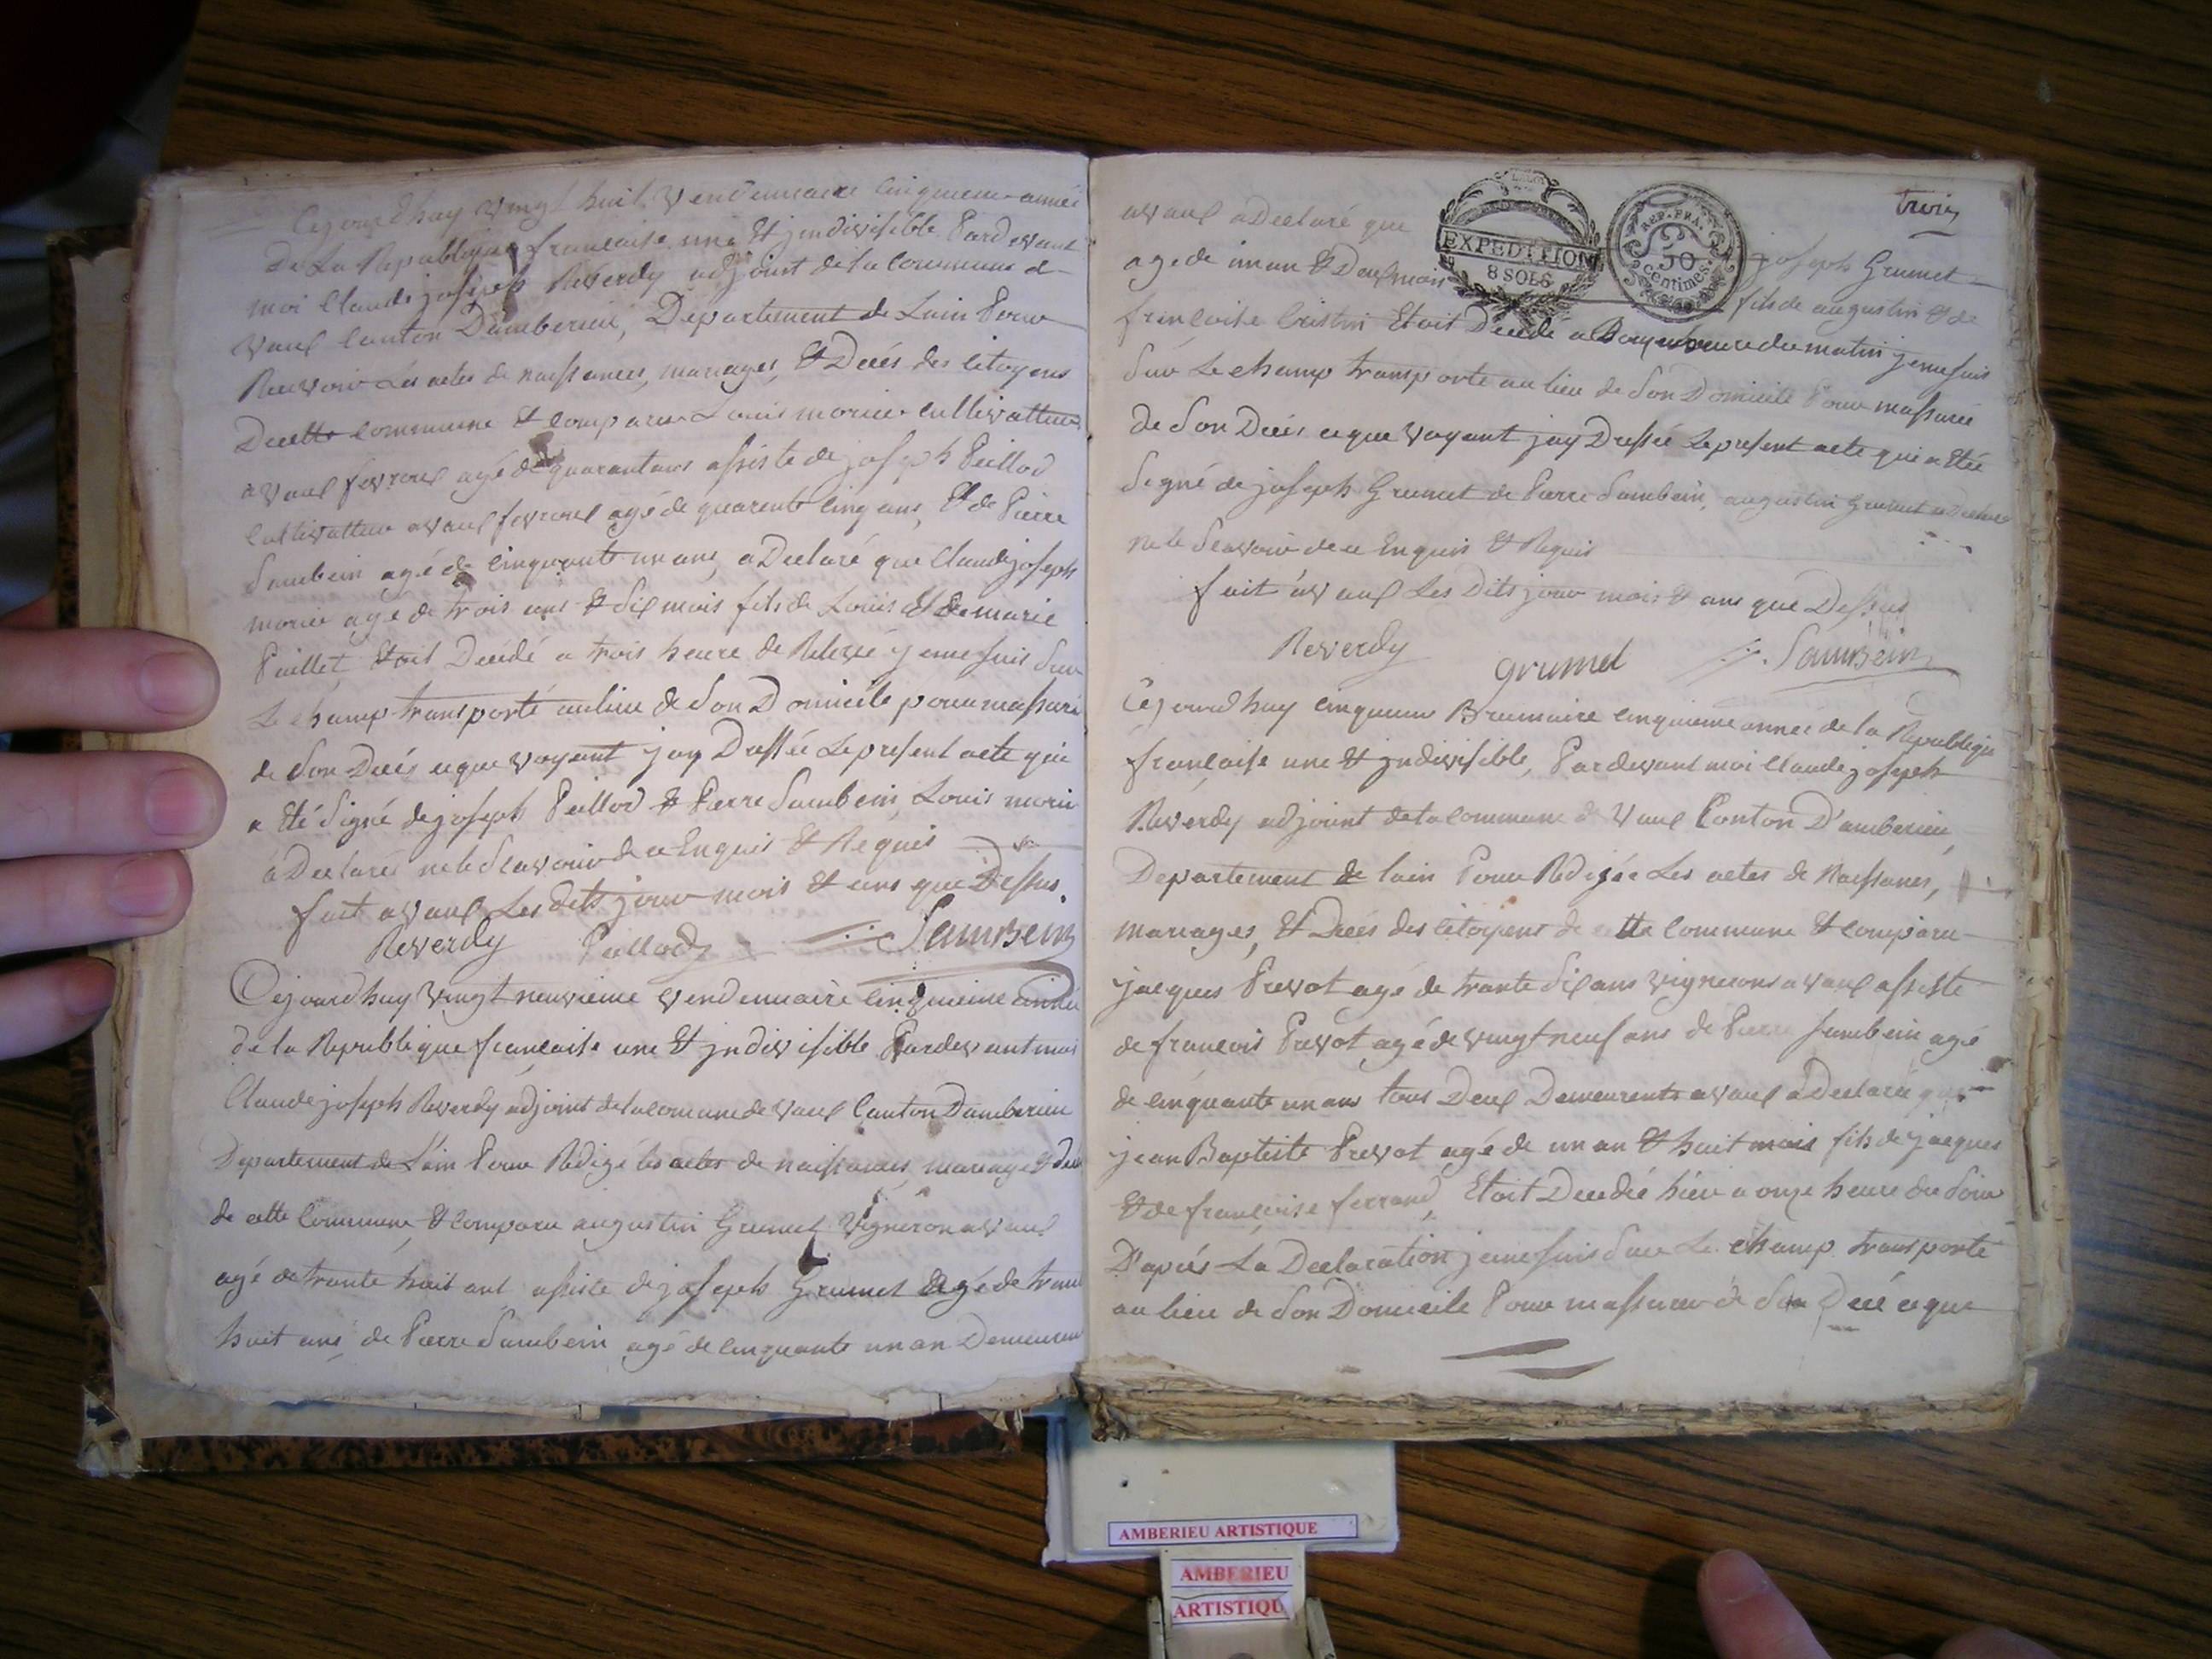 Cejourdhuy vingt huit vendemiaire cinquieme année
De La Republique francaise une Et jndivisible Pardevant
moi Claude joseph Reverdy adjoint de la Commune de
Vaux Canton D'amberieu, Departement de Lain Pour
Recevoir Les actes de naissances, mariages, & Décés des Citoyens
Decette Commune & comparu Louis morier cultivatteur
a Vaux fevroux agé de quarantans assiste de joseph Peillod
Cultivatteur a vaux fevroux agé de quarente cinq ans, & de Pierre
Saubein agé de cinquante un ans, a Declaré que Claude joseph
morier agé de trois ans & six mois fils de Louis Et De marie
Paillet Etoit Décédé a trois heure de Relevé jemesuis Sur
Le champ transporté aulieu de Son Domicile pour massuré
de Son Décés ceque voyant jay Dressée Lepresent acte qui
a Eté Signé de joseph Peillod & Pierre Saubein, Louis morier
a Declarés nele Scavoir de ce Enquis & Requis
fait a vaux Les dits jour mois & ans que Dessus.
Reverdy Peillod Saunbein
Cejourdhuy vingt neuvieme vendemiaire cinquieme année
de la Republique francaise une & jndivisible Pardevantmoi
Claude joseph Reverdy adjoint delacomune de vaux Canton Damberieu
Departement de L'ain Pour Redigé les actes de naissances, mariage & décé
de cette Commune, & comparu augustin Grumet Vigneron a vaux
agé de trante huit ans assiste de joseph Grumet agé de trante
huit ans de Pierre Saubein agé de cinquante un an Demeurant
trois
EXPEDITION
8 SOLS
REP. FRA.
50
centimes.
avaux a Declaré que joseph Grumet
agé de un an & Deux mois fils de augustin & de
francoise Cristin Etoit Décédé a heure du matin jemesuis
Sur Le champ transporte au lieu de Son Domicile Pour massuré
de Son Décés ceque voyant jay Dressée Lepresent acte qui a Eté
Signé de joseph Grumet de Pierre Saubein, augustin Grumet a Declaré
nele Scavoir de ce Enquis & Requis
fait a vaux Les Dits jour mois & ans que Dessus
Reverdy grumet Saunbein
Cejourdhuy cinquieme Brumaire cinquieme année de la Republique
francaise une & jndivisible, Pardevant moi Claude joseph
Reverdy adjoint delacommune de Vaux Canton D'amberieu,
Departement de lain Pour Redigée Les actes de Naissances,
mariages, & Décés des Citoyens de cette Commune & comparu
jacques Prevot agé de trante six ans vigneron a vaux assiste
de francois Prevot agé de vingt neuf ans de Pierre Saubein agé
de cinquante un ans tous Deux Demeurents a vaux a Declaré que
jean Baptiste Prevot agé de un an & huit mois fils de jacques
& de francoise ferrand, Etoit Decedé hier a onze heure du Soir
D'après La Declaration jemesuis Sur Le champ transporté
au lieu de Son Domicile Pour massurer de Son Décé ceque
AMBERIEU ARTISTIQUE
AMBERIEU
ARTISTIQU